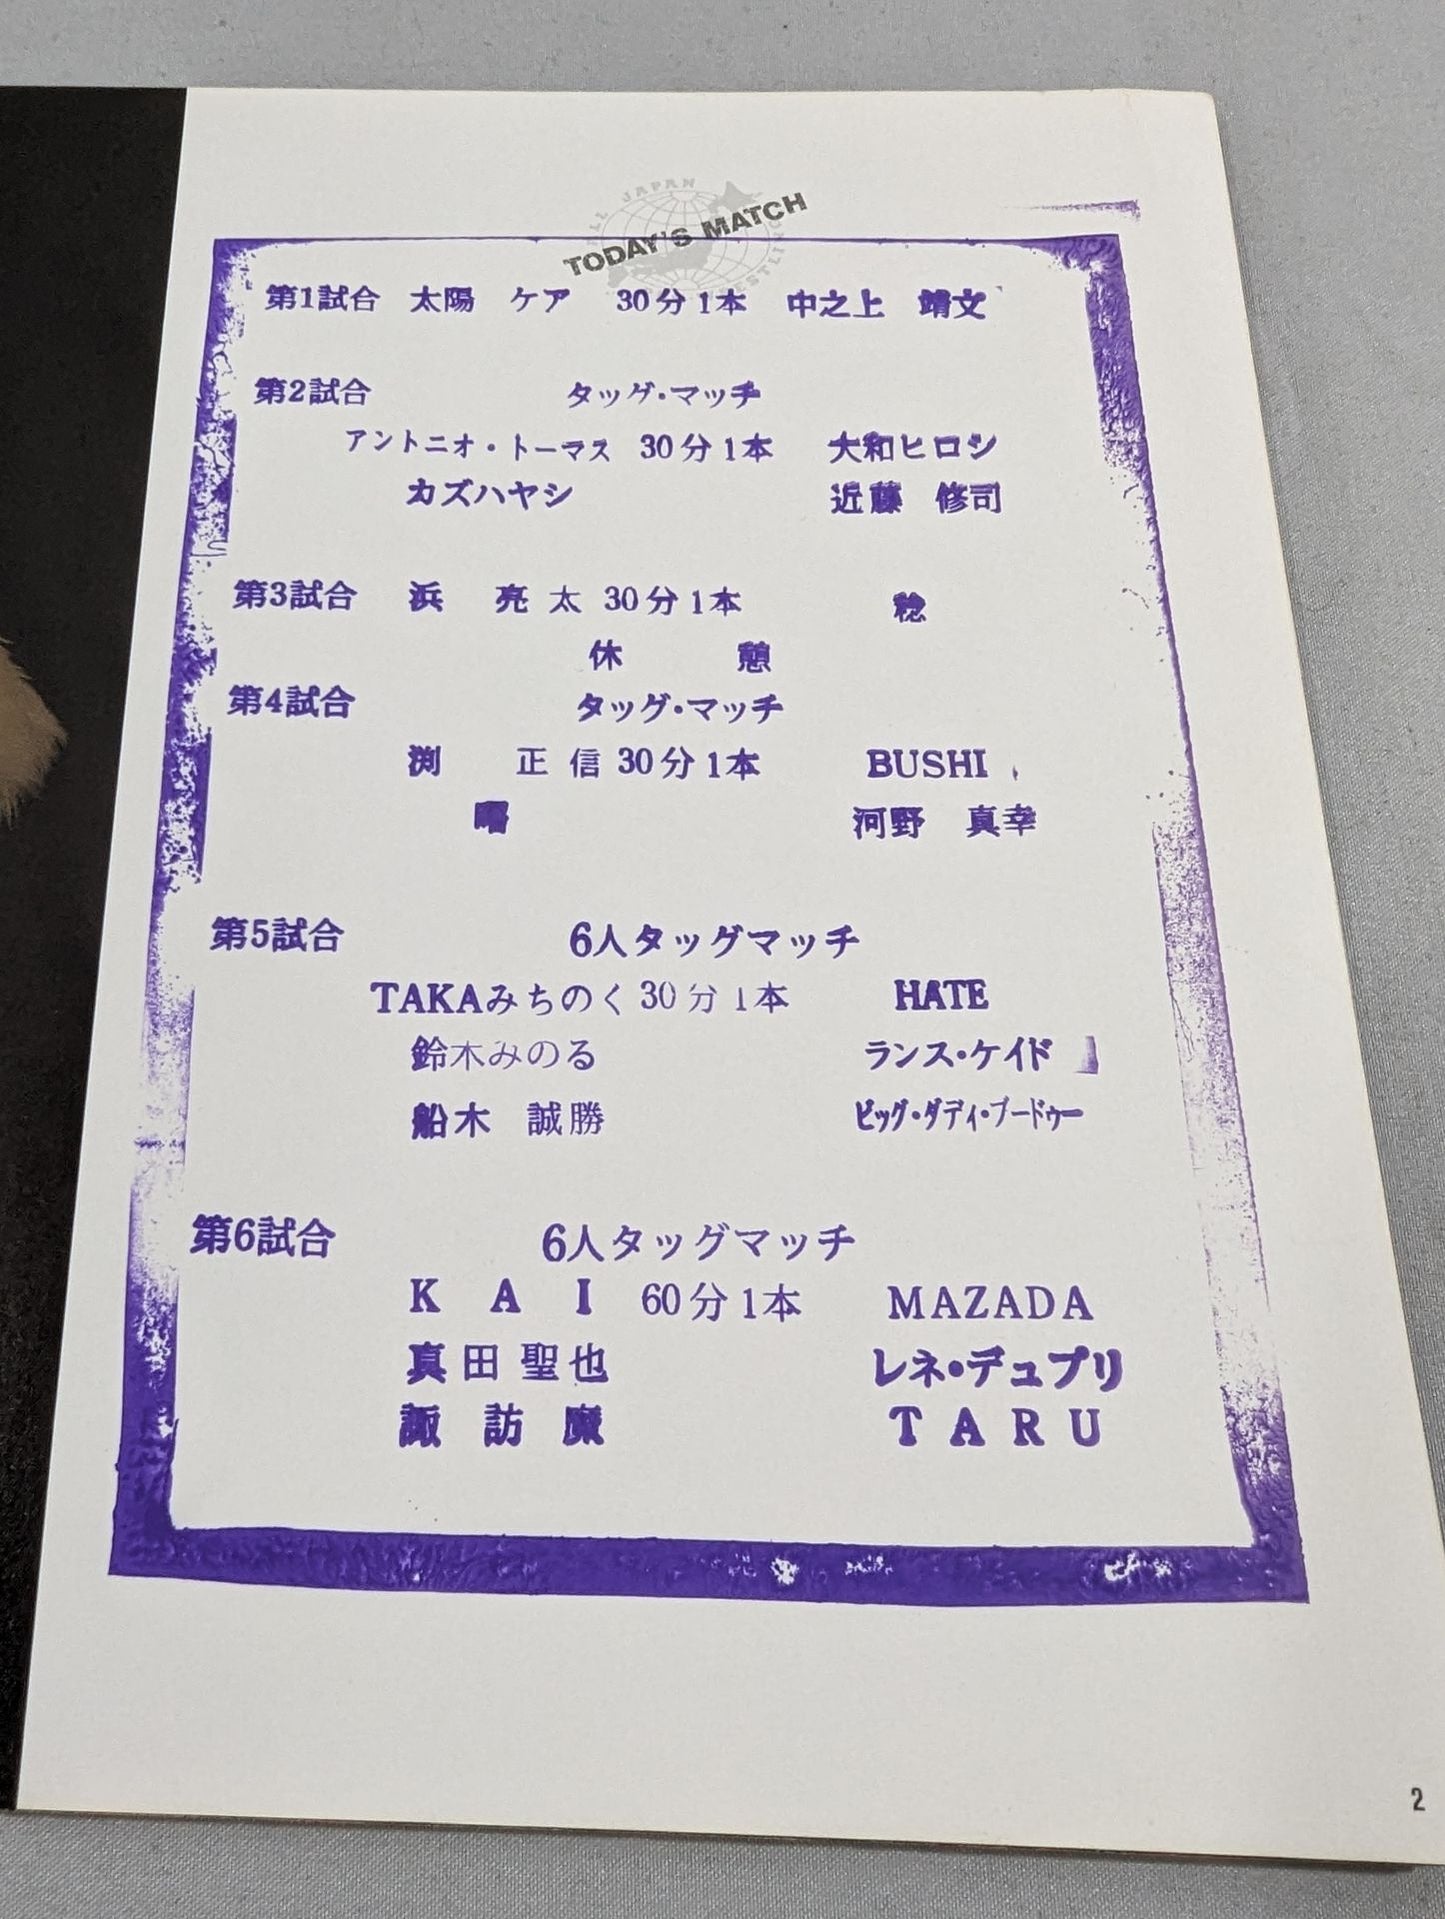 ALL JAPAN
TODAY'S MATCH
第1試合 太陽 ケア 30分1本 中之上 靖文
第2試合 タッグ・マッチ
アントニオ・トーマス 30分1本 大和ヒロシ
カズハヤシ 近藤 修司
第3試合 浜 亮太 30分1本 稔
休 憩
第4試合 タッグ・マッチ
渕 正信 30分1本 BUSHI
曙 河野 真幸
第5試合 6人タッグマッチ
TAKAみちのく 30分1本 HATE
鈴木みのる ランス・ケイド
船木 誠勝 ビッグ・ダディ・ブードゥー
第6試合 6人タッグマッチ
KAI 60分1本 MAZADA
真田聖也 レネ・デュプリ
諏訪魔 TARU
2